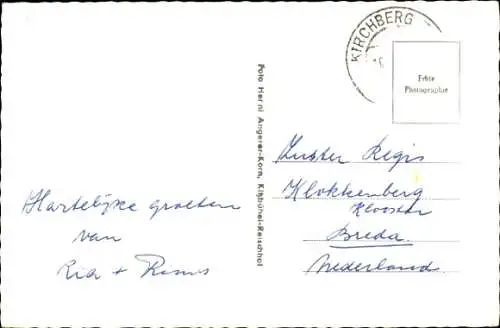 KIRCHBERG
Echte
Photographie
Foto Herni Angerer-Korn, Kitzbühel-Reischhof
Zuster Regis
Klokkenberg
Klooster
Breda.
Nederland
Hartelijke groeten
van
Ria + Rinus